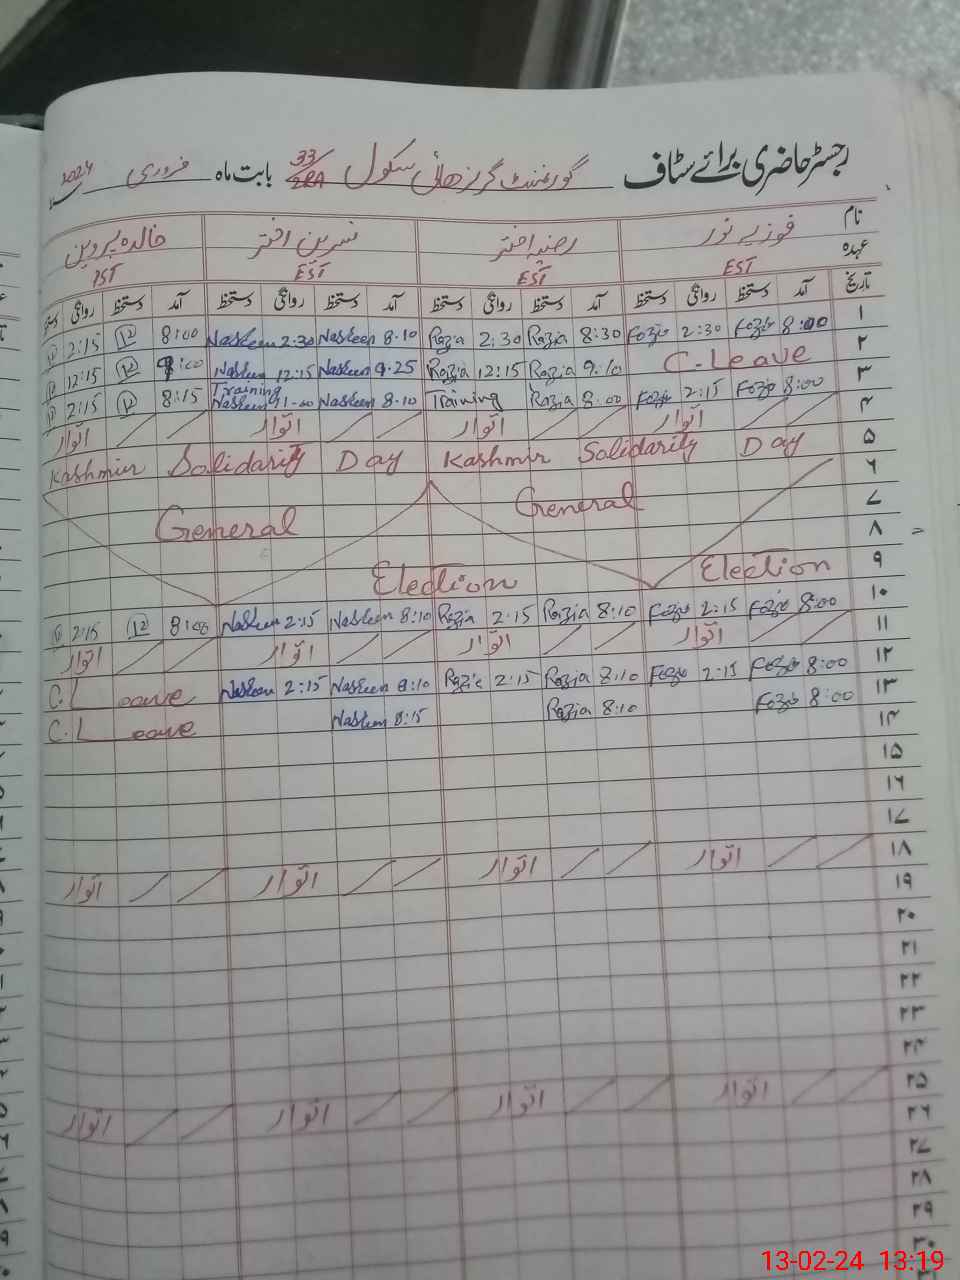 رجسٹر حاضری برائے سٹاف گورنمنٹ گرلز ھائی سکول 33/2RA بابت ماہ فروری 2024
نام فوزیہ نور رضیہ اختر نسرین اختر خالدہ پروین
عہدہ EST EST EST PST
تاریخ آمد دستخط روانگی دستخط آمد دستخط روانگی دستخط آمد دستخط روانگی دستخط آمد دستخط روانگی
۱ 8:00 Fozia 2:30 Fozia 8:30 Razia 2:30 Razia 8.10 Nasreen 2.30 Nasreen 8:00 2:15
۲ C-Leave 9.10 Razia 12:15 Razia 9.25 Nasreen 12:15 Nasreen 12:15
۳ 8:00 Fozia 2:15 Fozia 8.00 Razia Training 8.10 Nasreen Training Nasreen 8:15 2:15
۴ اتوار اتوار اتوار اتوار
۵ Kashmir Solidarity Day Kashmir Solidarity Day
۶
۷ General General
۸
۹ Election Election
۱۰ 8:00 Fozia 2:15 Fozia 8:10 Razia 2:15 Razia 8:10 Nasreen 2:15 Nasreen 8:00 2:15
۱۱ اتوار اتوار اتوار اتوار
۱۲ 8:00 Fozia 2:15 Fozia 8:10 Razia 2:15 Razia 8:10 Nasreen 2:15 Nasreen C. Leave
۱۳ 8:00 Fozia 8:10 Razia 8:15 Nasreen C. Leave
۱۴
۱۵
۱۶
۱۷
۱۸ اتوار اتوار اتوار اتوار
۱۹
۲۰
۲۱
۲۲
۲۳
۲۴
۲۵ اتوار اتوار اتوار اتوار
۲۶
۲۷
۲۸
۲۹
۳۰
13-02-24 13:19